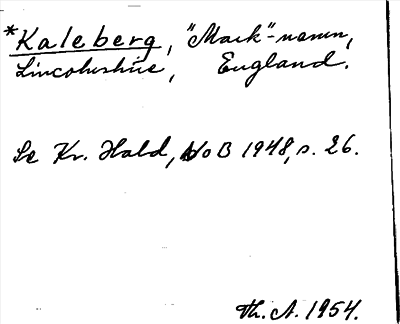 *Kaleberg, "Mark"-navn,
Lincolnshire, England.
Se Kr. Hald, NoB 1948, s. 26.
Th. A. 1954.